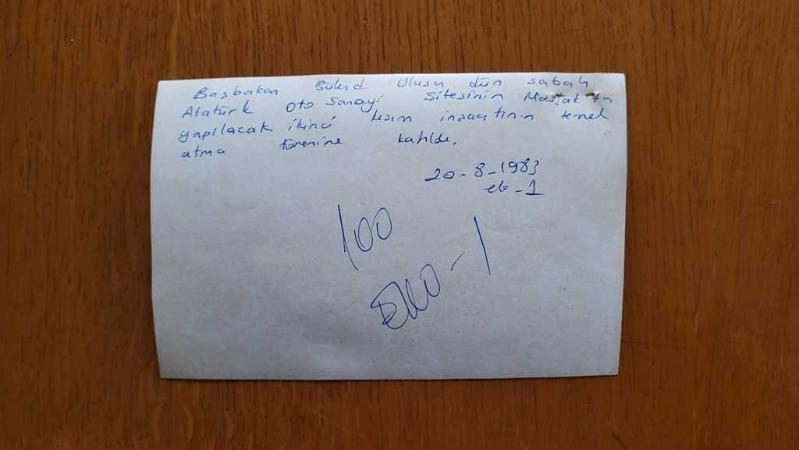 Başbakan Bülend Ulusu dün sabah
Atatürk Oto Sanayi Sitesinin Maslak'ta
yapılacak ikinci kısım inşaatının temel
atma törenine katıldı.
20-8-1983
eb-1
100
EKO-1